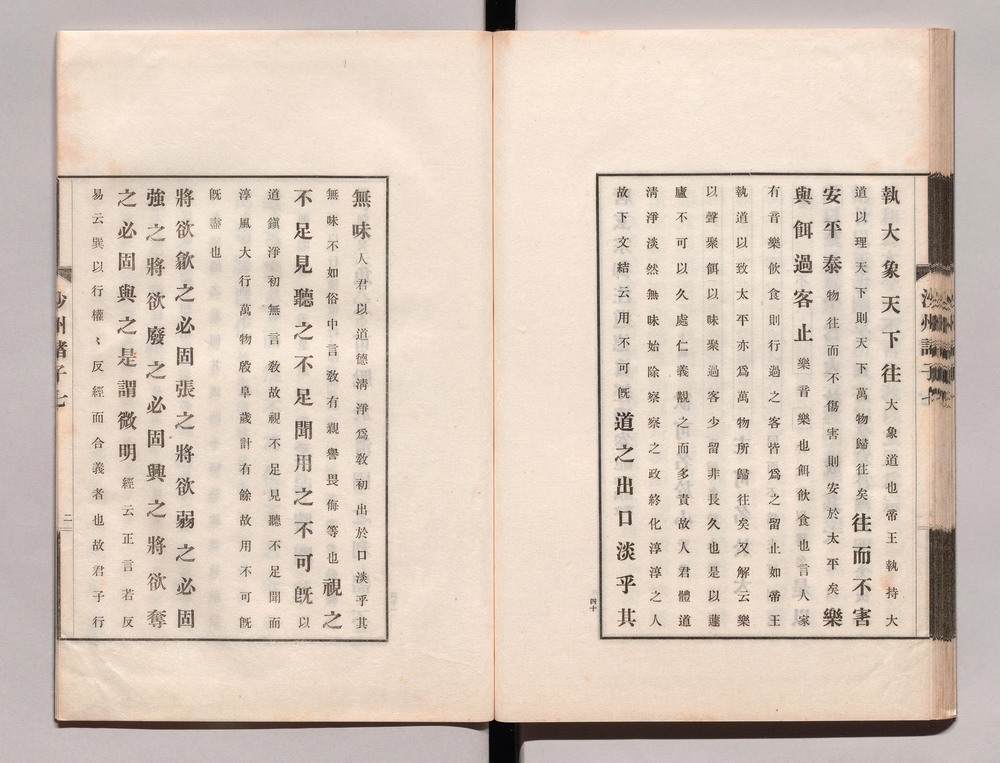 執大象天下往大象道也帝王執持大
道以理天下則天下萬物歸往矣往而不害
安平泰物往而不傷害則安於太平矣樂
與餌過客止樂音樂也餌飲食也言人家
有音樂飲食則行過之客皆爲之留止如帝王
執道以致太平亦爲萬物所歸往矣又解云樂
以聲聚餌以味聚過客少留非長久也是以蘧
廬不可以久處仁義覯之而多責故人君體道
清淨淡然無味始除察察之政終化淳淳之人
故下文結云用不可旣道之出口淡乎其
四十
無味人君以道德清淨爲敎初出於口淡乎其
無味不如俗中言敎有親譽畏侮等也視之
不足見聽之不足聞用之不可旣以
道鎭淨初無言敎故視不足見聽不足聞而
淳風大行萬物殷阜歲計有餘故用不可旣
旣盡也
將欲歙之必固張之將欲弱之必固
強之將欲廢之必固興之將欲奪
之必固與之是謂微明經云正言若反
易云巽以行權〻反經而合義者也故君子行
沙州諸子七
二